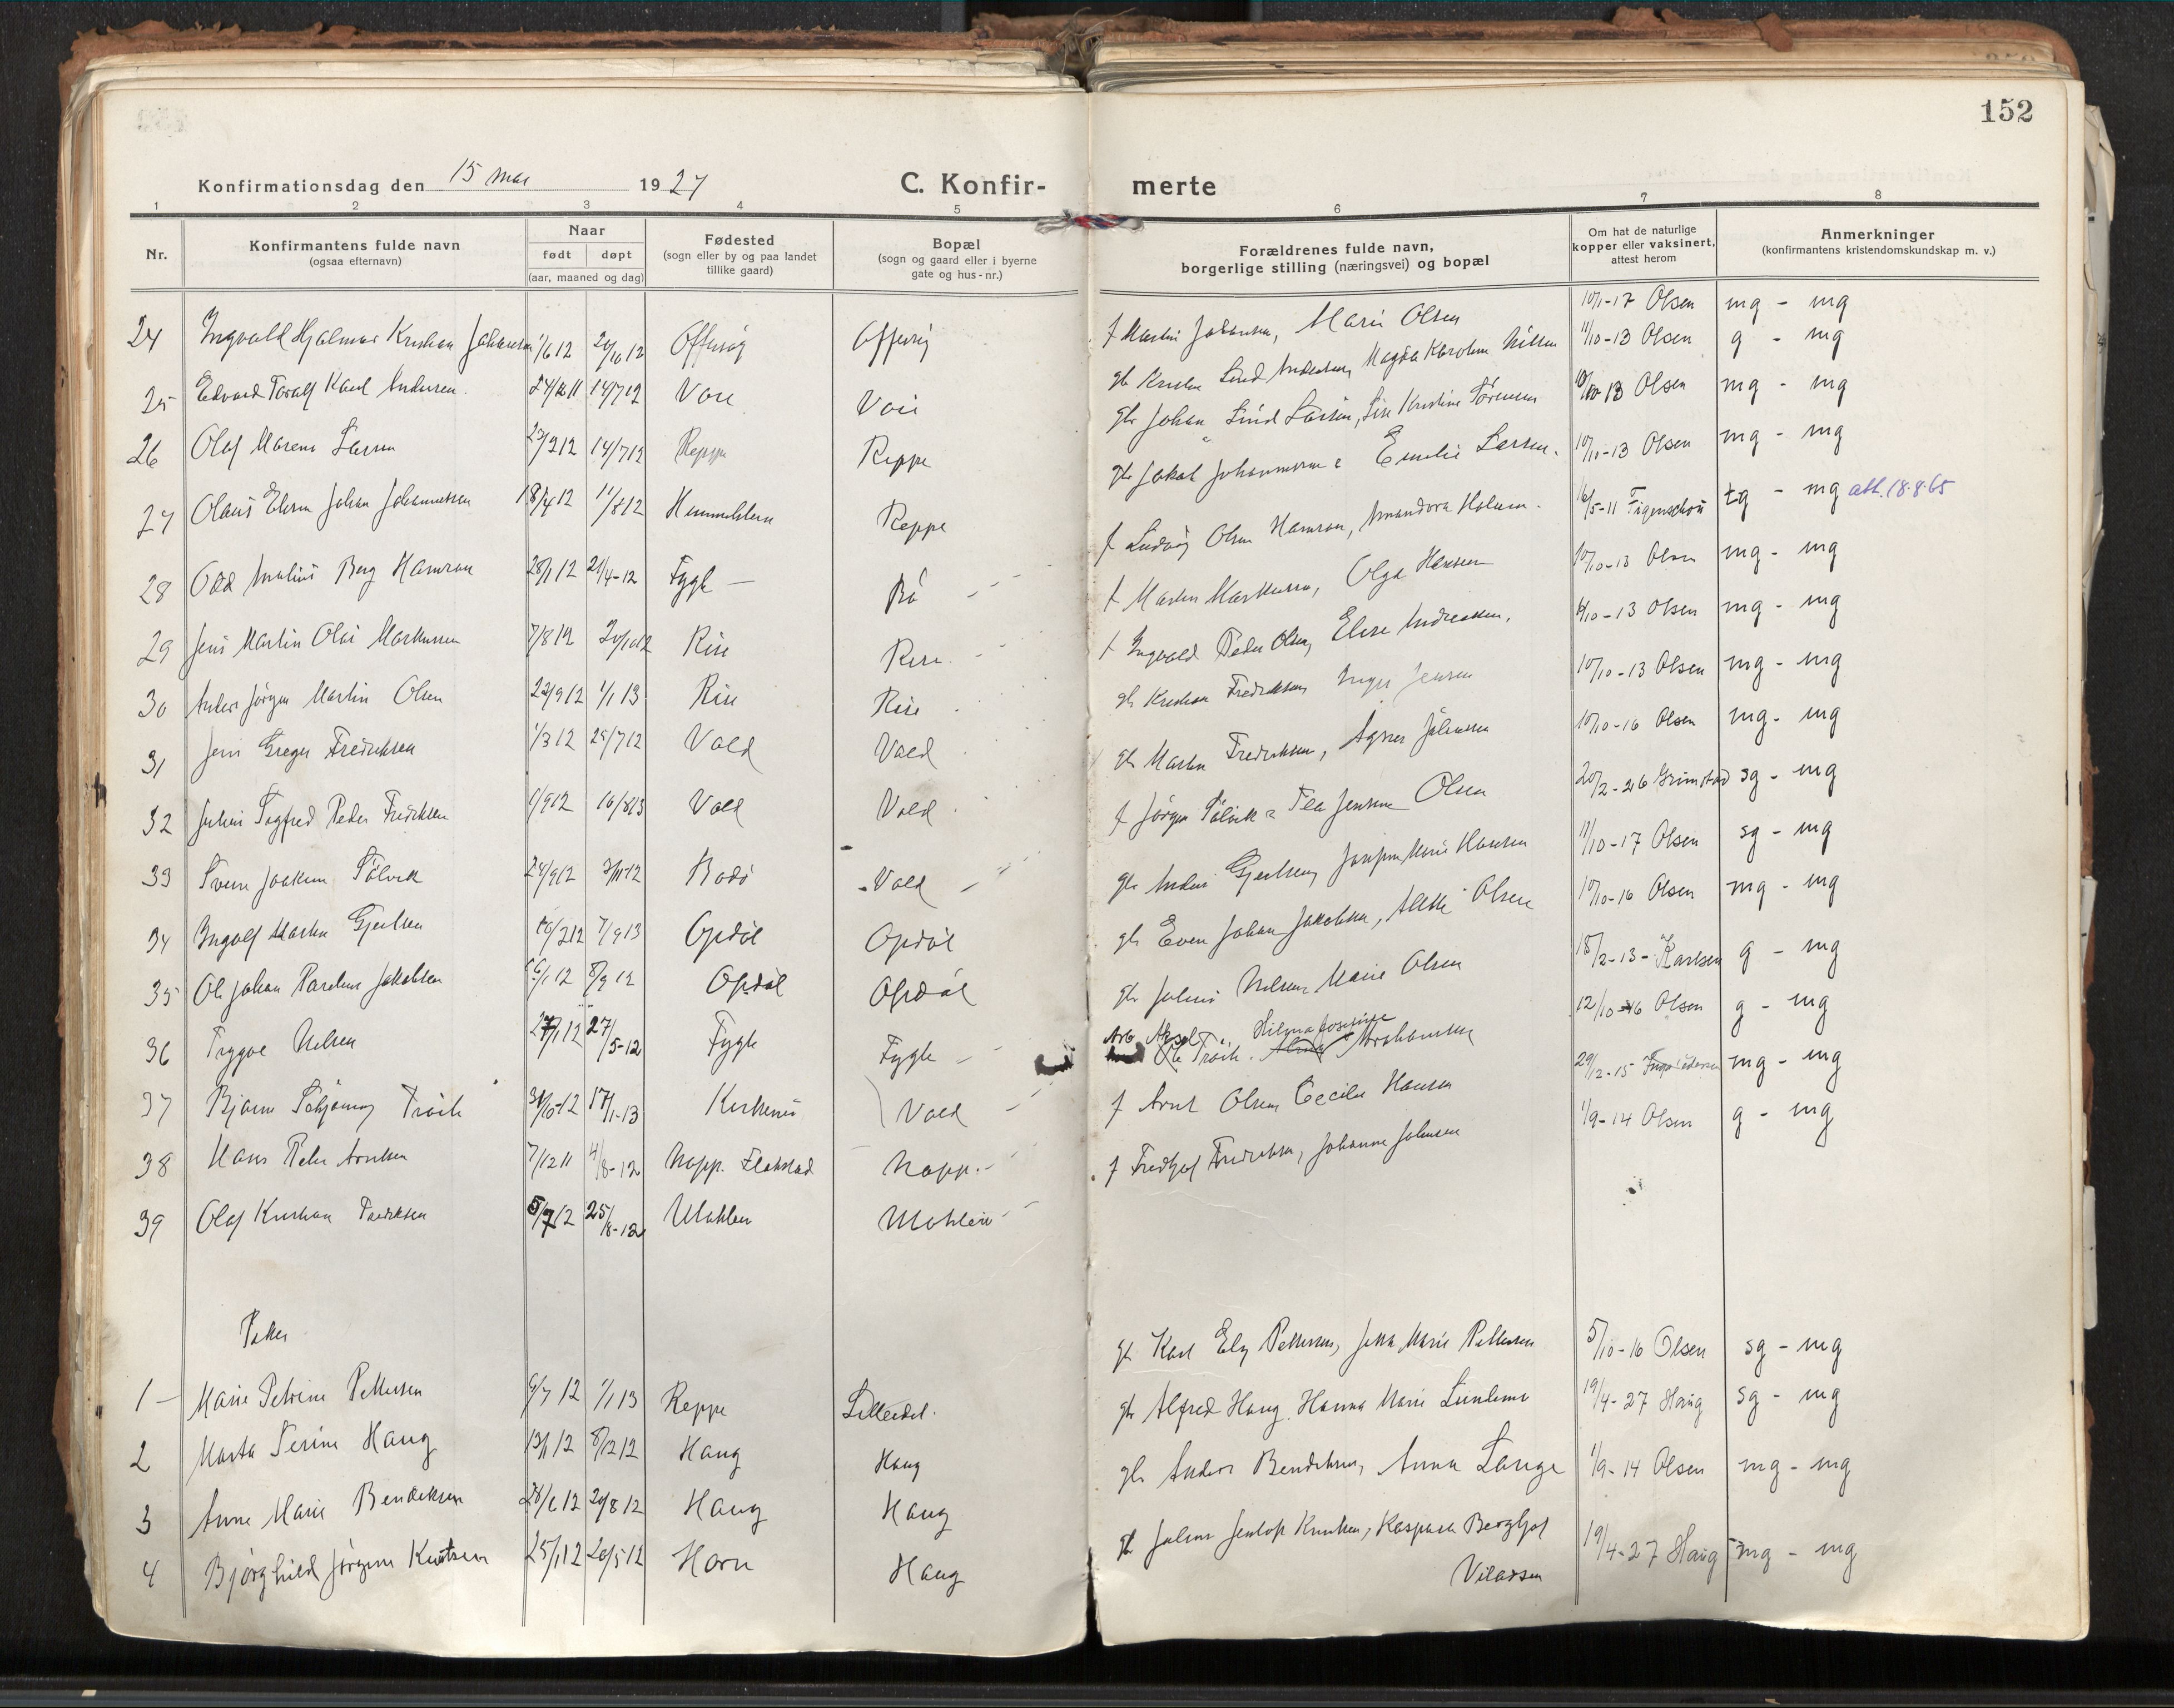 152
Konfirmationsdag den 15 mai 1927
C. Konfir- merte
1 2 3 4 5 6 7 8
Nr.
Konfirmantens fulde navn
(ogsaa efternavn)
Naar
født døpt
(aar, maaned og dag)
Fødested
(sogn eller by og paa landet
tillike gaard)
Bopæl
(sogn og gaard eller i byerne
gate og hus-nr.)
Forældrenes fulde navn,
borgerlige stilling (næringsvei) og bopæl
Om hat de naturlige
kopper eller vaksinert,
attest herom
Anmerkninger
(konfirmantens kristendomskundskap m. v.)
24 Ingvald Hjalmar Kristian Johansen 1/6 12 20/10 12 Offersøy Offersøy f Martin Johansen, Marie Olsen 10/1-17 Olsen mg - mg
25 Edvard Toralf Karl Andersen 14/7 12 Voie Voie gb Kristen Lind Andersen, Magda Karoline Nilsen 11/10-13 Olsen g - mg
26 Olaf Marenus Larsen 14/7 12 Reppe Reppe gb Johan Lind Larsen, Lise Kristine Sørensen Olsen mg - mg
27 Olaus Johan Johannessen 18/4 12 11/8 12 Reppe gb Jakob Johannessen & Emelie Larsen. 10/11-13 Olsen mg - mg
28 Odd Berg Hamran 28/1 12 21/4-12 Fygle Bø f Ludvig Olsen Hamran, Amandora Holmen. 16/5-11 Figenschou tg - mg att. 18.8.65
29 Jens Martin Olai Markussen 7/8 12 20/10 12 Rise Rise f Martin Markussen, Olga Hansen 10/10-13 Olsen mg - mg
30 Anders Jørgen Martin Olsen 22/9 12 1/1 13 Rise Rise f Ingvald Peder Olsen, Elise Andreassen. 11/10-13 Olsen mg - mg
31 Jens Greger Fredriksen 1/3 12 29/7 12 Vold Vold gb Kristian Fredriksen, Inger Jensen 10/10-13 Olsen mg - mg
32 Julius Sigfred Peder Fredriksen 1/9 12 16/8 13 Vold Vold gb Martin Fredriksen, Agnes Johansen 10/10-16 Olsen mg - mg
33 Svein Joakim Sølvik 24/9 12 3/11-12 Bodø Vold f Jørgen Sølvik & Tea Jensine Olsen 20/2-26 Grimstad sg - mg
34 Ingolf Martin Gjertsen 7/9 13 Opdøl Opdøl gb Anders Gjertsen, Josefine Marie Hansen 11/10-17 Olsen sg - mg
35 Ole Johan Parelius Jakobsen 8/9 12 Opdøl Opdøl gb Even Johan Jakobsen, Alette Olsen 10/10-16 Olsen mg - mg
36 Trygve Nilsen 27/1 12 27/5-12 Fygle Fygle gb Julius Nilsen, Marie Olsen 18/2-13- Karlsen g - mg
37 Bjarne Schjønning Trøite 31/10-12 17/1-13 Kirkenes Vold Arb Aksel Ole Trøite. Hilma Josefine Alma Abrahamsen 12/10-16 Olsen g - mg
38 Hans Peder Arntsen 7/12 11 4/8-12 Napp. Flakstad Napp. f Arnt Olsen, Cecilie Hansen 29/12-15 mg - mg
39 Olaf Kristian Fredriksen 5/7 12 25/8-12 Mohlen f Fredtjof Fredriksen, Johanne Johnsen 1/9-14 Olsen g - mg
Piker
1 - Marie Petrine Pettersen 6/7 12 1/1 13 Reppe Lilleeidet. gb Karl Ely Pettersen, Jetta Marie Pettersen 5/10-16 Olsen sg - mg
2 Marta Serine Haug 13/1 12 8/12 12 Haug Haug gb Alfred Haug, Hanna Marie 19/4-27 Haug sg - mg
3 Anne Marie Bendiksen 28/6 12 20/8 12 Haug Haug gb Anders Bendiksen, Anna Lange 1/9-14 Olsen mg - mg
4 Bjørghild Jørgine Knutsen 25/1 12 20/5 12 Horn Haug gb Julius Jentoft Knutsen, Kaspara Bergljot Vilarsen 19/4-27 Haug mg - mg